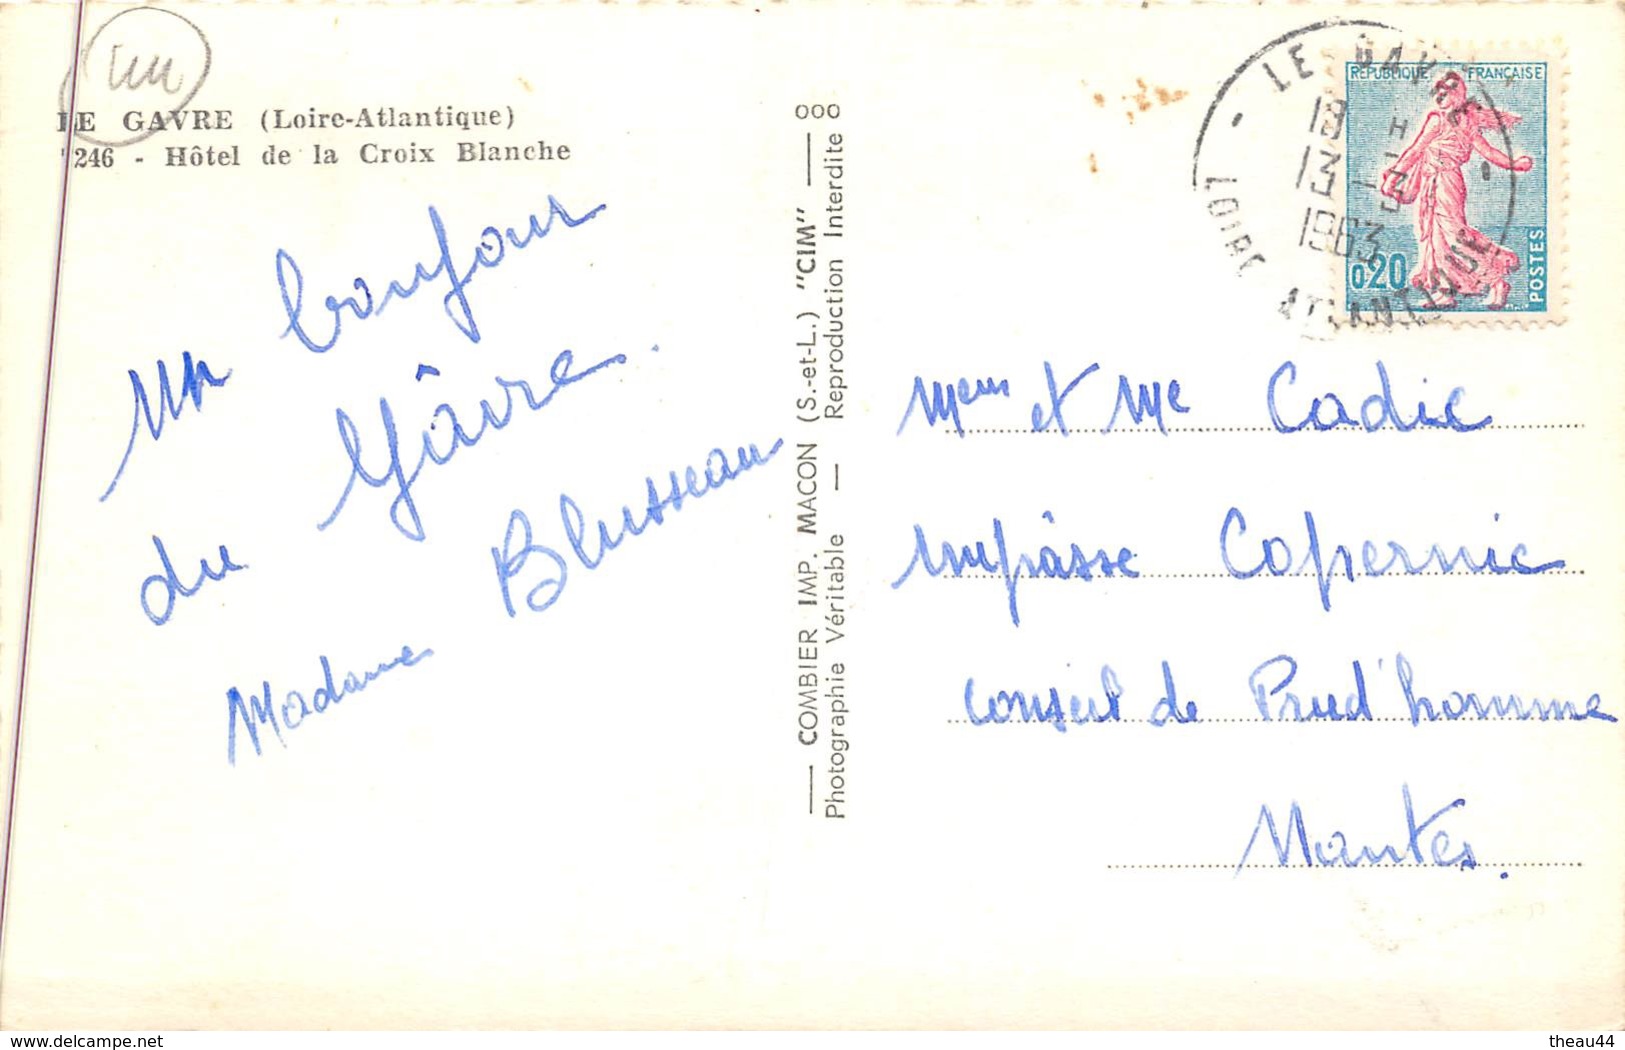 LE GAVRE (Loire-Atlantique)
246 - Hôtel de la Croix Blanche
Un bonjour
du Gâvre.
Madame Blusseau
000
COMBIER IMP. MACON (S.-et-L.) "CIM"
Photographie Véritable — Reproduction Interdite
LE GAVRE
18 H
13 - 3
1963
LOIRE ATLANTIQUE
REPUBLIQUE FRANÇAISE
0,20
POSTES
et Me Cadic
impâsse Copernic
Conseil de Prud'homme
Nantes.
www.delcampe.net
theau44